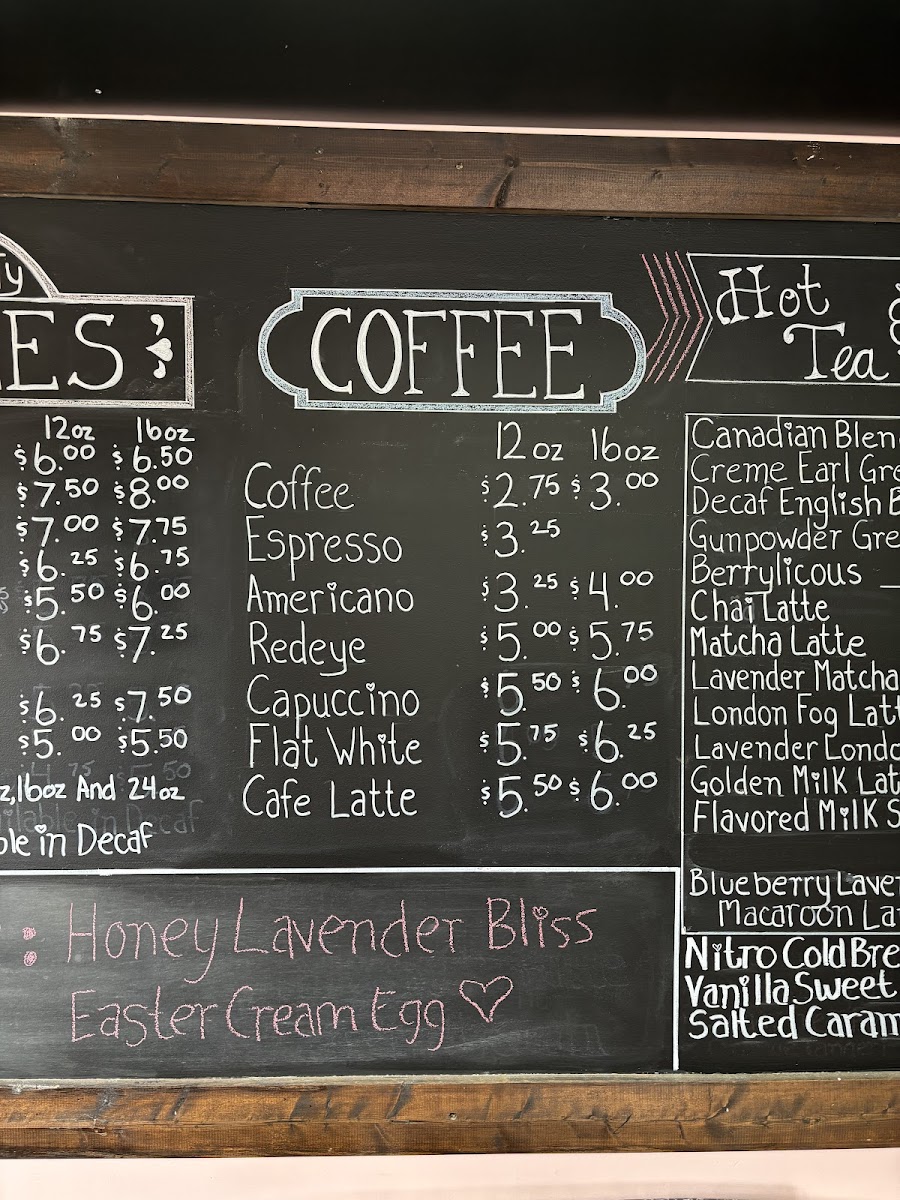 ES
12oz 16oz
$6.00 $6.50
$7.50 $8.00
$7.00 $7.75
$6.25 $6.75
$5.50 $6.00
$6.75 $7.25
$6.25 $7.50
$5.00 $5.50
16oz And 24oz
in Decaf
COFFEE
12oz 16oz
Coffee $2.75 $3.00
Espresso $3.25
Americano $3.25 $4.00
Redeye $5.00 $5.75
Capuccino $5.50 $6.00
Flat White $5.75 $6.25
Cafe Latte $5.50 $6.00
Hot
Tea
Canadian Blen
Creme Earl Gre
Decaf English B
Gunpowder Gre
Berrylicous
Chai Latte
Matcha Latte
Lavender Matcha
London Fog Latt
Lavender Londo
Golden Milk Lat
Flavored Milk S
Blueberry Laven
Macaroon La
Nitro Cold Bre
Vanilla Sweet
Salted Caram
: Honey Lavender Bliss
Easter Cream Egg ♡